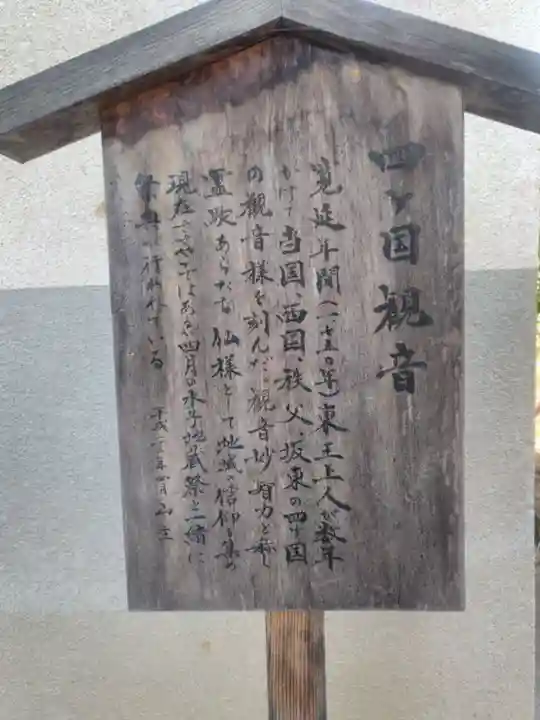 四ヶ国観音
寛延年間(一七五〇年)東王上人が数年
かけて当国、西国、秩父、坂東の四ヶ国
の観音様を刻んだ 観音妙智力と称し
霊験あらたな仏様として地域の信仰を集め
現在ささやかではあるが四月の水子地蔵祭と一緒に
祭典が行われている 平成二 年 月